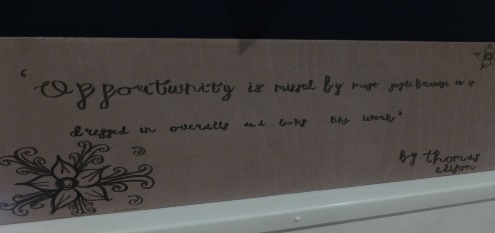 ‘Opportunity is missed by most people because it is
dressed in overalls and looks like work’
By Thomas
edison